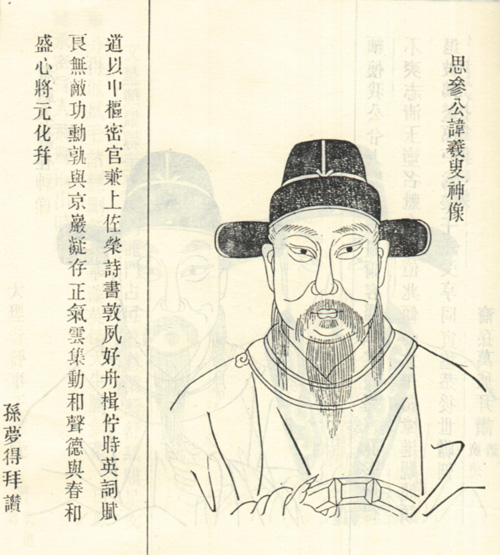 思叅公諱羲叟神像
道以中樞密官兼上佐榮詩書敦夙好舟楫佇時英詞賦
良無敵功勳孰與京巖凝存正氣雲集動和聲德與春和
盛心將元化幷
孫夢得拜讚